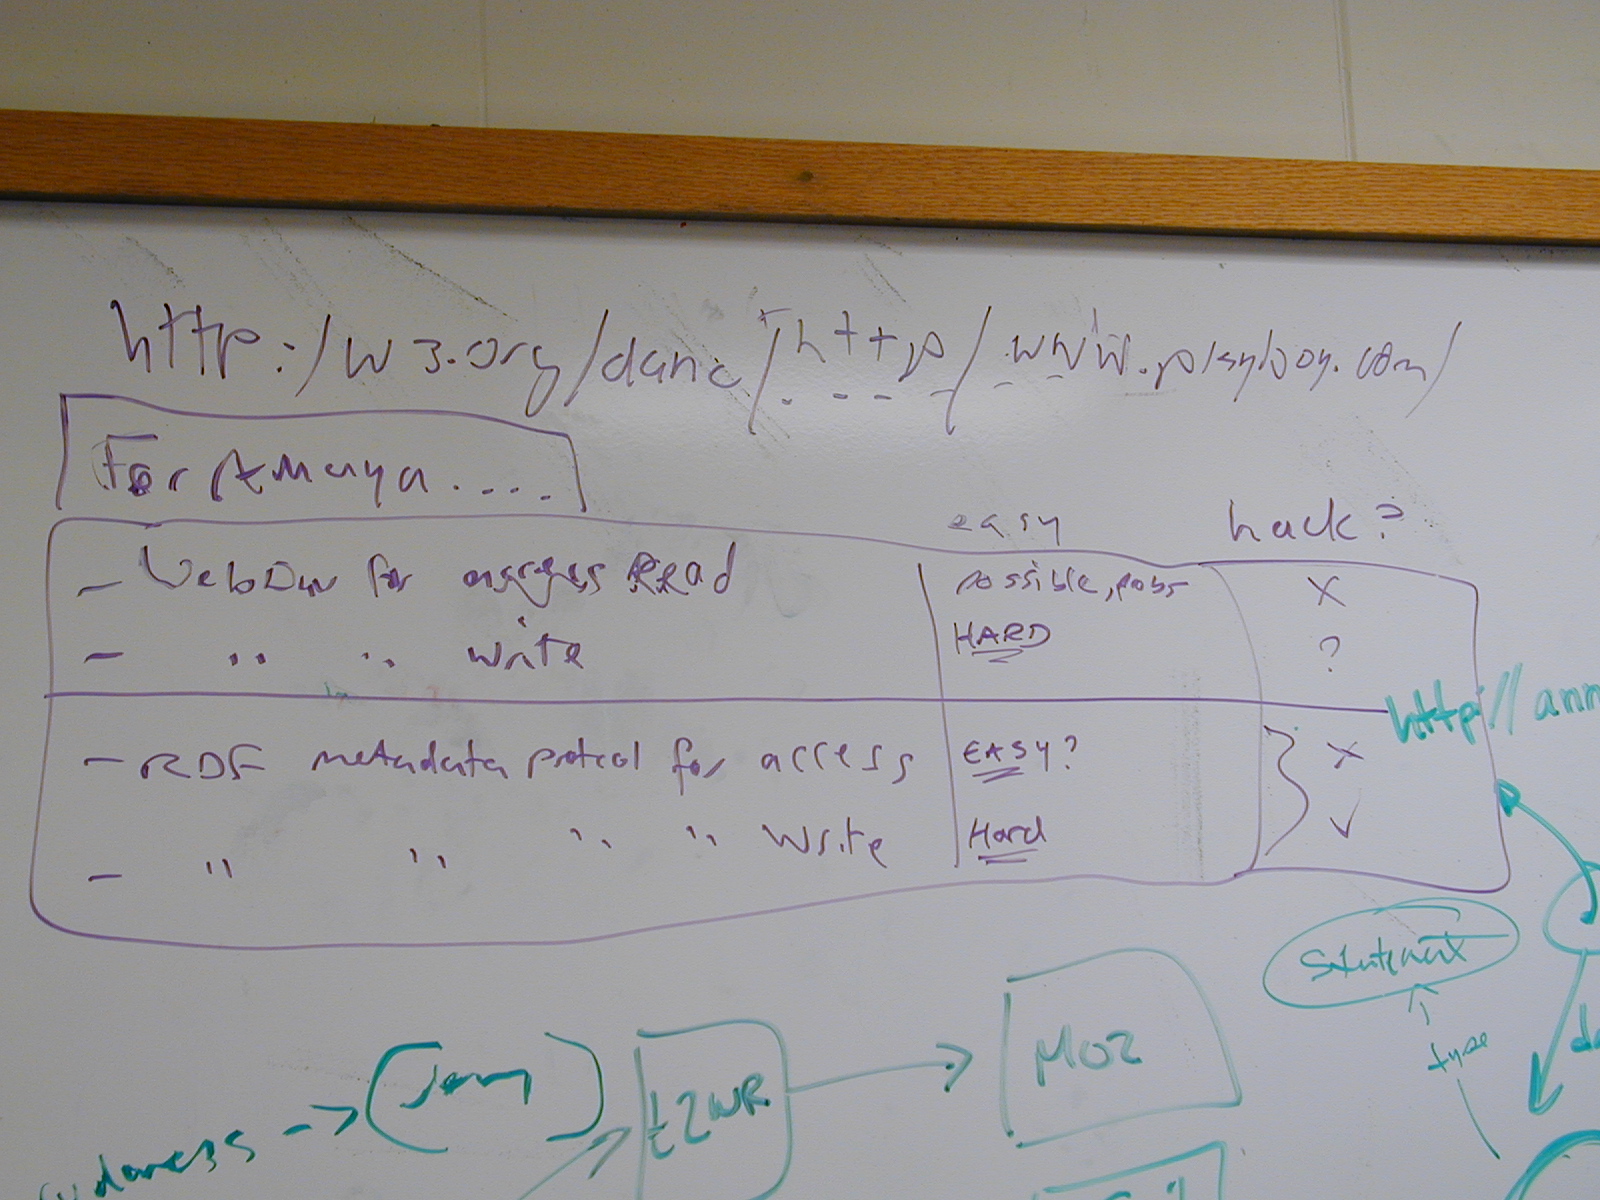 http:/w3.org/danc/http/www.playboy.com/
For Amaya.....
easy hack?
- WebDav for access Read possible, probs X
- " " write HARD ?
- RDF metadata protcol for access EASY? X
- " " " " Write Hard ✓
http://ann
Statement
type
MOZ